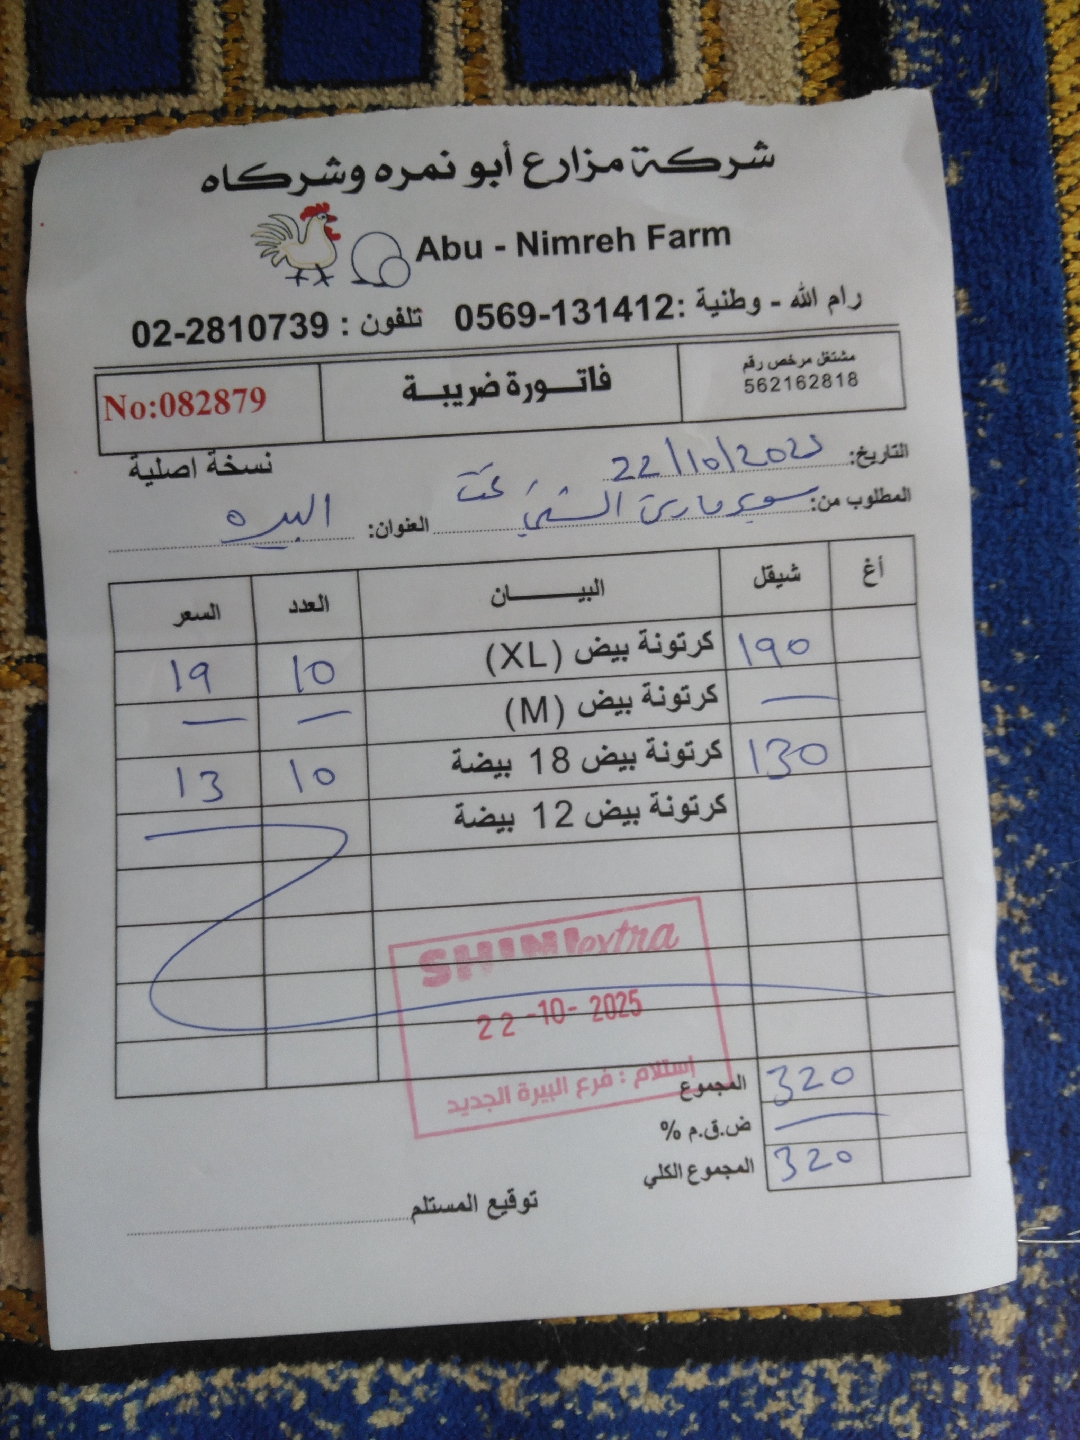 شركة مزارع أبو نمره وشركاه
Abu - Nimreh Farm
رام الله - وطنية : 0569-131412 تلفون : 02-2810739
مشتغل مرخص رقم
562162818
فاتورة ضريبة
No:082879
نسخة اصلية
التاريخ: 22/10/2025
المطلوب من: سوبر ماركت الشني
العنوان: البيره
أغ شيقل البيان العدد السعر
190 كرتونة بيض (XL) 10 19
— كرتونة بيض (M) — —
130 كرتونة بيض 18 بيضة 10 13
كرتونة بيض 12 بيضة
SHINI extra
22-10-2025
استلام : فرع البيرة الجديد
المجموع 320
ض.ق.م % —
المجموع الكلي 320
توقيع المستلم